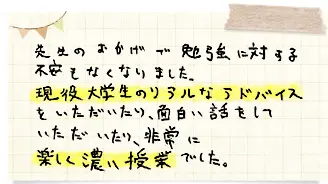 先生のおかげで勉強に対する
不安もなくなりました。
現役大学生のリアルなアドバイス
をいただいたり、面白い話をして
いただいたり、非常に
楽しく濃い授業でした。